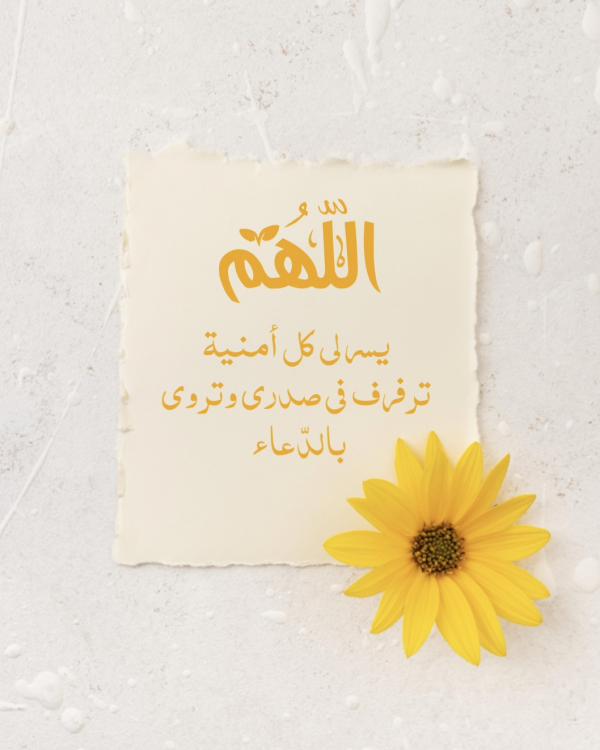 اللّهُم
يسرلى كل أمنية
ترفرف فى صدرى وتروى
بالدّعاء